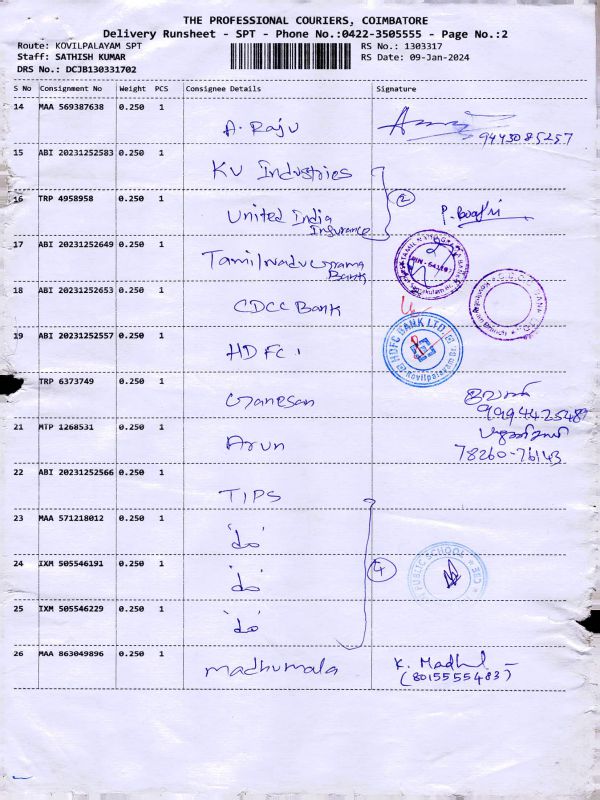 THE PROFESSIONAL COURIERS, COIMBATORE
Delivery Runsheet - SPT - Phone No.:0422-3505555 - Page No.:2
Route: KOVILPALAYAM SPT
RS No.: 1303317
Staff: SATHISH KUMAR
RS Date: 09-Jan-2024
DRS No.: DCJB130331702
S No Consignment No Weight PCS Consignee Details Signature
14 MAA 569387638 0.250 1 A. Raju
9443085257
15 ABI 20231252583 0.250 1 KV Industries
2
16 TRP 4958958 0.250 1 United India
Insurance
17 ABI 20231252649 0.250 1 Tamilnadu Grama
Bank
18 ABI 20231252653 0.250 1 CDCC Bank
19 ABI 20231252557 0.250 1 HDFC
HDFC BANK LTD.
Kovilpalayam Br.
TRP 6373749 0.250 1 Ganesan
21 MTP 1268531 0.250 1 Arun
78260-76143
22 ABI 20231252566 0.250 1 TIPS
23 MAA 571218012 0.250 1 'do'
24 IXM 505546191 0.250 1 'do'
4
PUBLIC SCHOOL
25 IXM 505546229 0.250 1 'do'
26 MAA 863049896 0.250 1 Madhumala
K. Madhu
(8015555483)